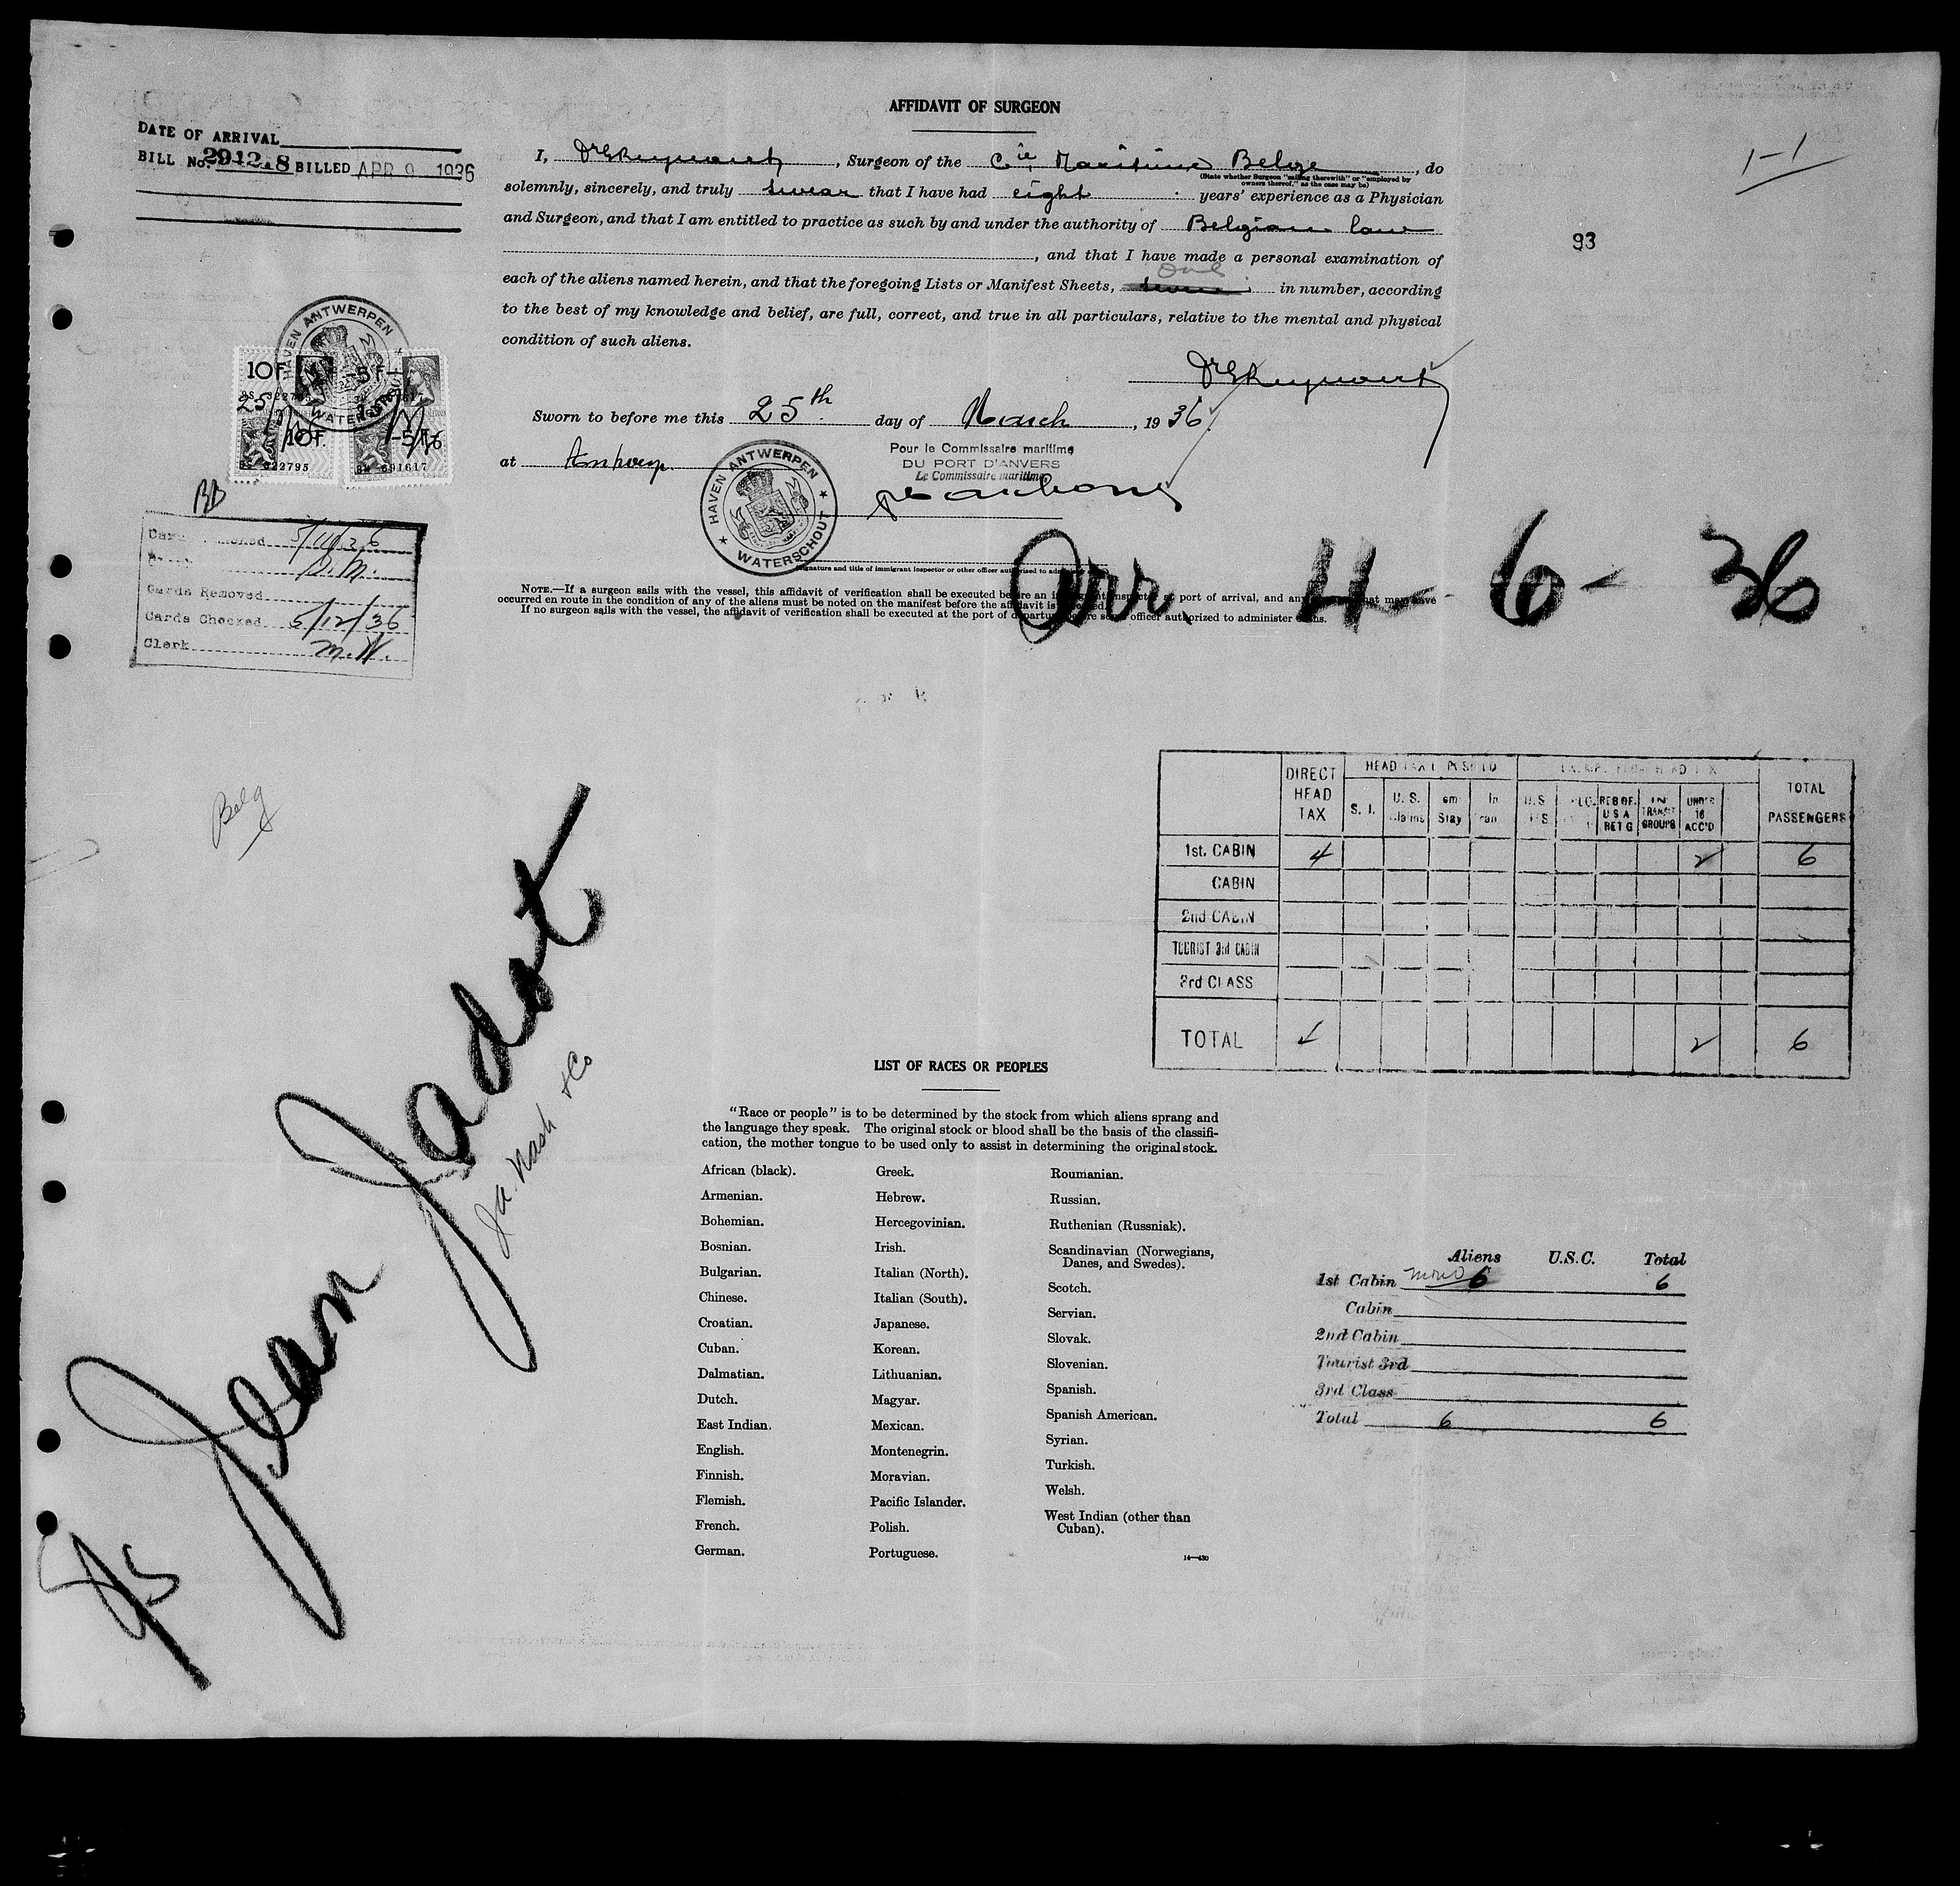 AFFIDAVIT OF SURGEON
DATE OF ARRIVAL
BILL No. 2912.8 BILLED APR 9 1936
1-1
93
I, , Surgeon of the Cie Maritime Belge, do
(State whether Surgeon "sailing therewith" or "employed by owners thereof," as the case may be)
solemnly, sincerely, and truly swear that I have had eight years' experience as a Physician
and Surgeon, and that I am entitled to practice as such by and under the authority of Belgian law
, and that I have made a personal examination of
each of the aliens named herein, and that the foregoing Lists or Manifest Sheets, one in number, according
to the best of my knowledge and belief, are full, correct, and true in all particulars, relative to the mental and physical
condition of such aliens.
Sworn to before me this 25th day of March, 1936.
at Antwerp.
Pour le Commissaire maritime
DU PORT D'ANVERS
Le Commissaire maritime,
HAVEN ANTWERPEN
WATERSCHOUT
HAVEN ANTWERPEN
WATERSCHOUT
10F. -5F-
10F. -5F-
322795 691617
BB
5/11/36
Cards Removed
Cards Checked 5/12/36
Clerk M.W.
Signature and title of immigrant inspector or other officer authorized to
Arr. 4-6-36
NOTE.—If a surgeon sails with the vessel, this affidavit of verification shall be executed before an port of arrival, and any that may have
occurred en route in the condition of any of the aliens must be noted on the manifest before the affidavit is
If no surgeon sails with the vessel, the affidavit of verification shall be executed at the port of departure before some officer authorized to administer oaths.
Belg
Jean Jadot
Nash & Co
DIRECT HEAD TAX
S. I. U. S. Stay
REB OF. U S A RET G IN TRANSIT GROUPS UNDER 16 ACC'D
TOTAL PASSENGERS
1st. CABIN 4 2 6
CABIN
2nd CABIN
TOURIST 3rd CABIN
3rd CLASS
TOTAL 4 2 6
LIST OF RACES OR PEOPLES
"Race or people" is to be determined by the stock from which aliens sprang and
the language they speak. The original stock or blood shall be the basis of the classifi-
cation, the mother tongue to be used only to assist in determining the original stock.
African (black).
Armenian.
Bohemian.
Bosnian.
Bulgarian.
Chinese.
Croatian.
Cuban.
Dalmatian.
Dutch.
East Indian.
English.
Finnish.
Flemish.
French.
German.
Greek.
Hebrew.
Hercegovinian.
Irish.
Italian (North).
Italian (South).
Japanese.
Korean.
Lithuanian.
Magyar.
Mexican.
Montenegrin.
Moravian.
Pacific Islander.
Polish.
Portuguese.
Roumanian.
Russian.
Ruthenian (Russniak).
Scandinavian (Norwegians,
Danes, and Swedes).
Scotch.
Servian.
Slovak.
Slovenian.
Spanish.
Spanish American.
Syrian.
Turkish.
Welsh.
West Indian (other than
Cuban).
14—430
Aliens U.S.C. Total
1st Cabin 6 6
Cabin
2nd Cabin
Tourist 3rd
3rd Class
Total 6 6